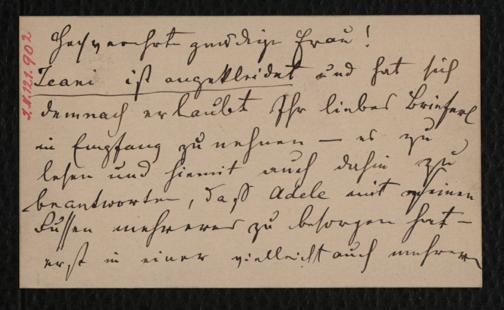 Hochverehrte gnädige Frau!
Jeani ist angekleidet und hat sich
demnach erlaubt Ihr liebes Brieferl
in Empfang zu nehmen – es zu
lesen und hiemit auch dahin zu
beantworten, daß Adele mit meinen
Füssen mehreres zu besorgen hat –
erst in einer vielleicht auch mehreren
I.N.121.902